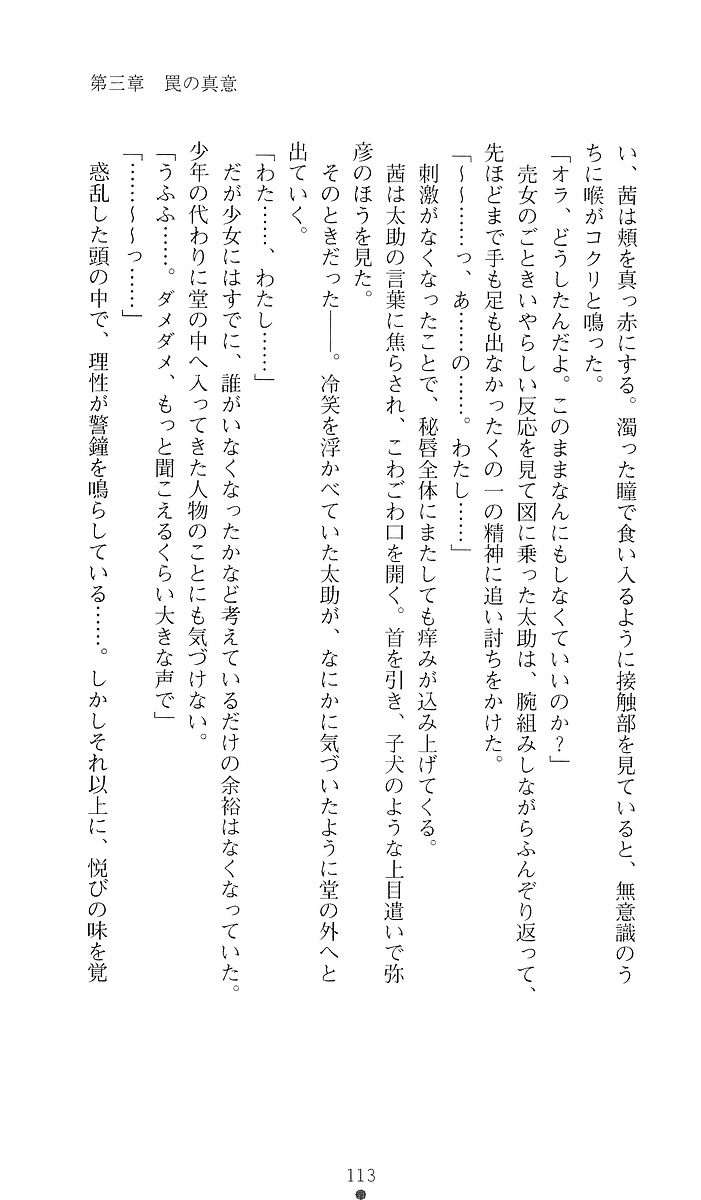 第三章　罠の真意
い、茜は頬を真っ赤にする。濁った瞳で食い入るように接触部を見ていると、無意識のう
ちに喉がコクリと鳴った。
「オラ、どうしたんだよ。このままなんにもしなくていいのか？」
売女のごときいやらしい反応を見て図に乗った太助は、腕組みしながらふんぞり返って、
先ほどまで手も足も出なかったくの一の精神に追い討ちをかけた。
「～～……っ、あ……の……。わたし……」
刺激がなくなったことで、秘唇全体にまたしても痒みが込み上げてくる。
茜は太助の言葉に焦らされ、こわごわ口を開く。首を引き、子犬のような上目遣いで弥
彦のほうを見た。
そのときだった――。冷笑を浮かべていた太助が、なにかに気づいたように堂の外へと
出ていく。
「わた……、わたし……」
だが少女にはすでに、誰がいなくなったかなど考えているだけの余裕はなくなっていた。
少年の代わりに堂の中へ入ってきた人物のことにも気づけない。
「うふふ……。ダメダメ、もっと聞こえるくらい大きな声で」
「……～～っ……」
惑乱した頭の中で、理性が警鐘を鳴らしている……。しかしそれ以上に、悦びの味を覚
113